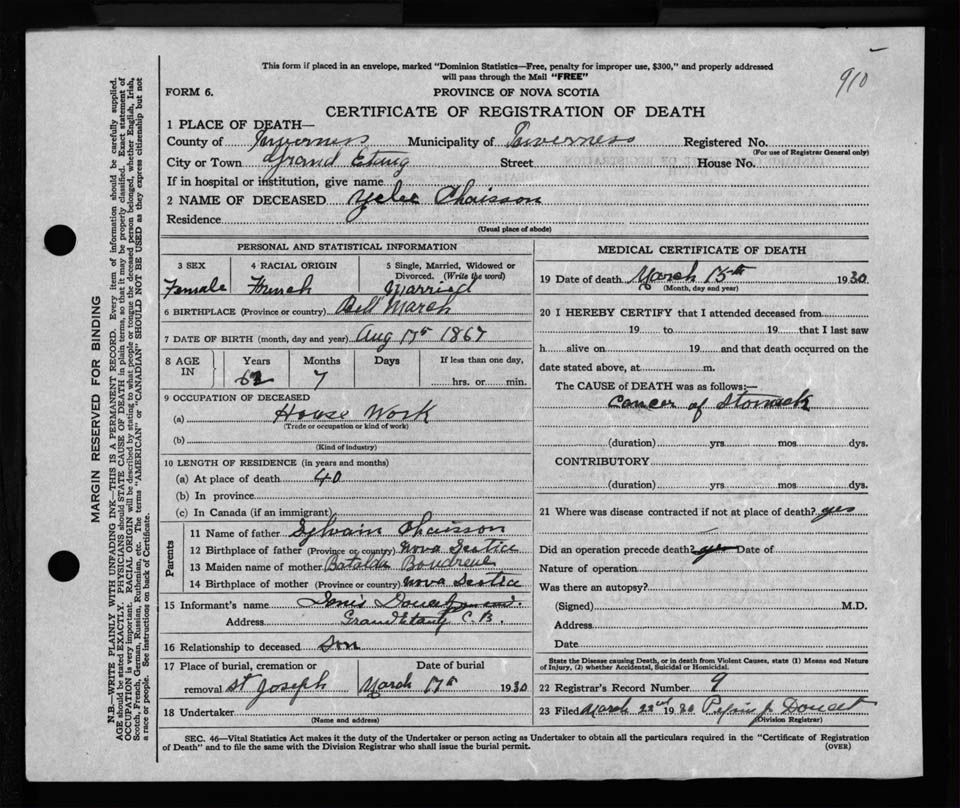 910
This form if placed in an envelope, marked "Dominion Statistics—Free, penalty for improper use, $300," and properly addressed
will pass through the Mail "FREE"
FORM 6.
PROVINCE OF NOVA SCOTIA
CERTIFICATE OF REGISTRATION OF DEATH
1 PLACE OF DEATH—
County of Inverness Municipality of Inverness Registered No.
(For use of Registrar General only)
City or Town Grand Etang Street House No.
If in hospital or institution, give name
2 NAME OF DECEASED Chaisson
Residence
(Usual place of abode)
PERSONAL AND STATISTICAL INFORMATION
3 SEX 4 RACIAL ORIGIN 5 Single, Married, Widowed or Divorced. (Write the word)
Female French Married
6 BIRTHPLACE (Province or country) Bell March
7 DATE OF BIRTH (month, day and year) Aug 17th 1867
8 AGE IN Years Months Days If less than one day,
62 7 hrs. or min.
9 OCCUPATION OF DECEASED
(a) House Work
(Trade or occupation or kind of work)
(b)
(Kind of industry)
10 LENGTH OF RESIDENCE (in years and months)
(a) At place of death 40
(b) In province
(c) In Canada (if an immigrant)
Parents
11 Name of father Sylvain Chaisson
12 Birthplace of father (Province or country) Nova Scotia
13 Maiden name of mother
14 Birthplace of mother (Province or country) Nova Scotia
15 Informant's name Denis Doucet
Address Grand Etang C. B.
16 Relationship to deceased Son
17 Place of burial, cremation or Date of burial
removal St Joseph March 17th 1930
18 Undertaker
(Name and address)
MEDICAL CERTIFICATE OF DEATH
19 Date of death March 15th 1930
(Month, day and year)
20 I HEREBY CERTIFY that I attended deceased from
19 to 19 that I last saw
h alive on 19 and that death occurred on the
date stated above, at m.
The CAUSE of DEATH was as follows:—
Cancer of Stomack
(duration) yrs. mos. dys.
CONTRIBUTORY
(duration) yrs. mos. dys.
21 Where was disease contracted if not at place of death? yes
Did an operation precede death? yes Date of
Nature of operation
Was there an autopsy?
(Signed) M.D.
Address
Date
State the Disease causing Death, or in death from Violent Causes, state (1) Means and Nature
of Injury, (2) whether Accidental, Suicidal or Homicidal.
22 Registrar's Record Number 9
23 Filed March 22nd 1930 J. Doucet
(Division Registrar)
SEC. 46—Vital Statistics Act makes it the duty of the Undertaker or person acting as Undertaker to obtain all the particulars required in the "Certificate of Registration
of Death" and to file the same with the Division Registrar who shall issue the burial permit.
(OVER)
MARGIN RESERVED FOR BINDING
N.B.—WRITE PLAINLY WITH UNFADING INK—THIS IS A PERMANENT RECORD. Every item of information should be carefully supplied.
AGE should be stated EXACTLY. PHYSICIANS should STATE CAUSE OF DEATH in plain terms, so that it may be properly classified. Exact statement of
OCCUPATION is very important. RACIAL ORIGIN will be described by stating to what people or tongue the deceased person belonged, whether English, Irish,
Scotch, French, German, Russian, Ruthenian, etc. The terms "AMERICAN" or "CANADIAN" SHOULD NOT BE USED as they express citizenship but not
a race or people. See instructions on back of Certificate.